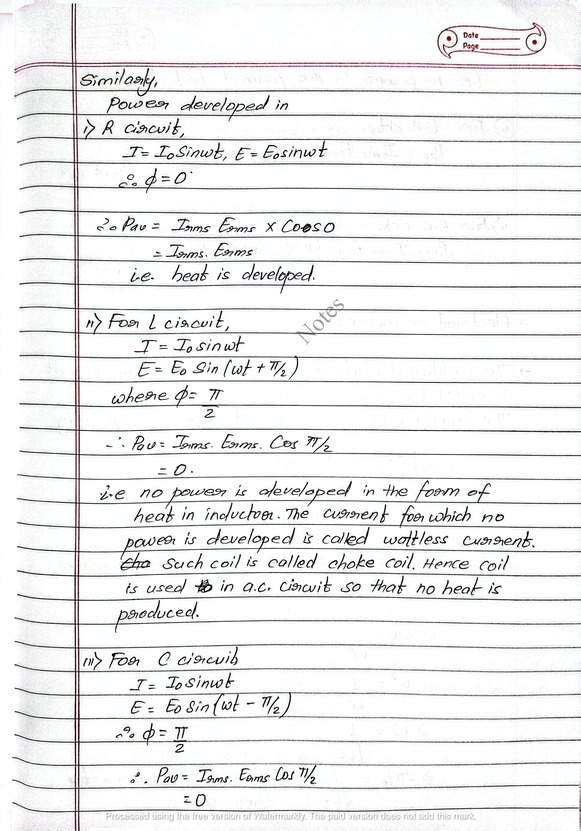 Date
Page
Similarly,
Power developed in
i) R circuit,
I = I₀ Sinωt, E = E₀sinωt
∴ ϕ = 0
∴ Pav = Irms Erms × Cos0
= Irms. Erms
i.e. heat is developed.
Notes
ii) For L circuit,
I = I₀ sinωt
E = E₀ Sin (ωt + π/2)
where ϕ = π/2
∴ Pav = Irms. Erms. Cos π/2
= 0.
i.e no power is developed in the form of
heat in inductor. The current for which no
power is developed is called wattless current.
Such coil is called choke coil. Hence coil
is used in a.c. circuit so that no heat is
produced.
iii) For C circuit
I = I₀ sinωt
E = E₀ Sin (ωt - π/2)
∴ ϕ = π/2
∴ Pav = Irms. Erms Cos π/2
= 0
Processed using the free version of Watermarkly. The paid version does not add this mark.